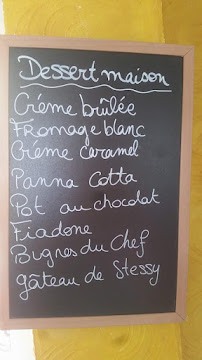 Dessert maison
Crème brûlée
Fromage blanc
Crème caramel
Panna Cotta
Pot au chocolat
Fiadone
Bugnes du Chef
gâteau de Stessy